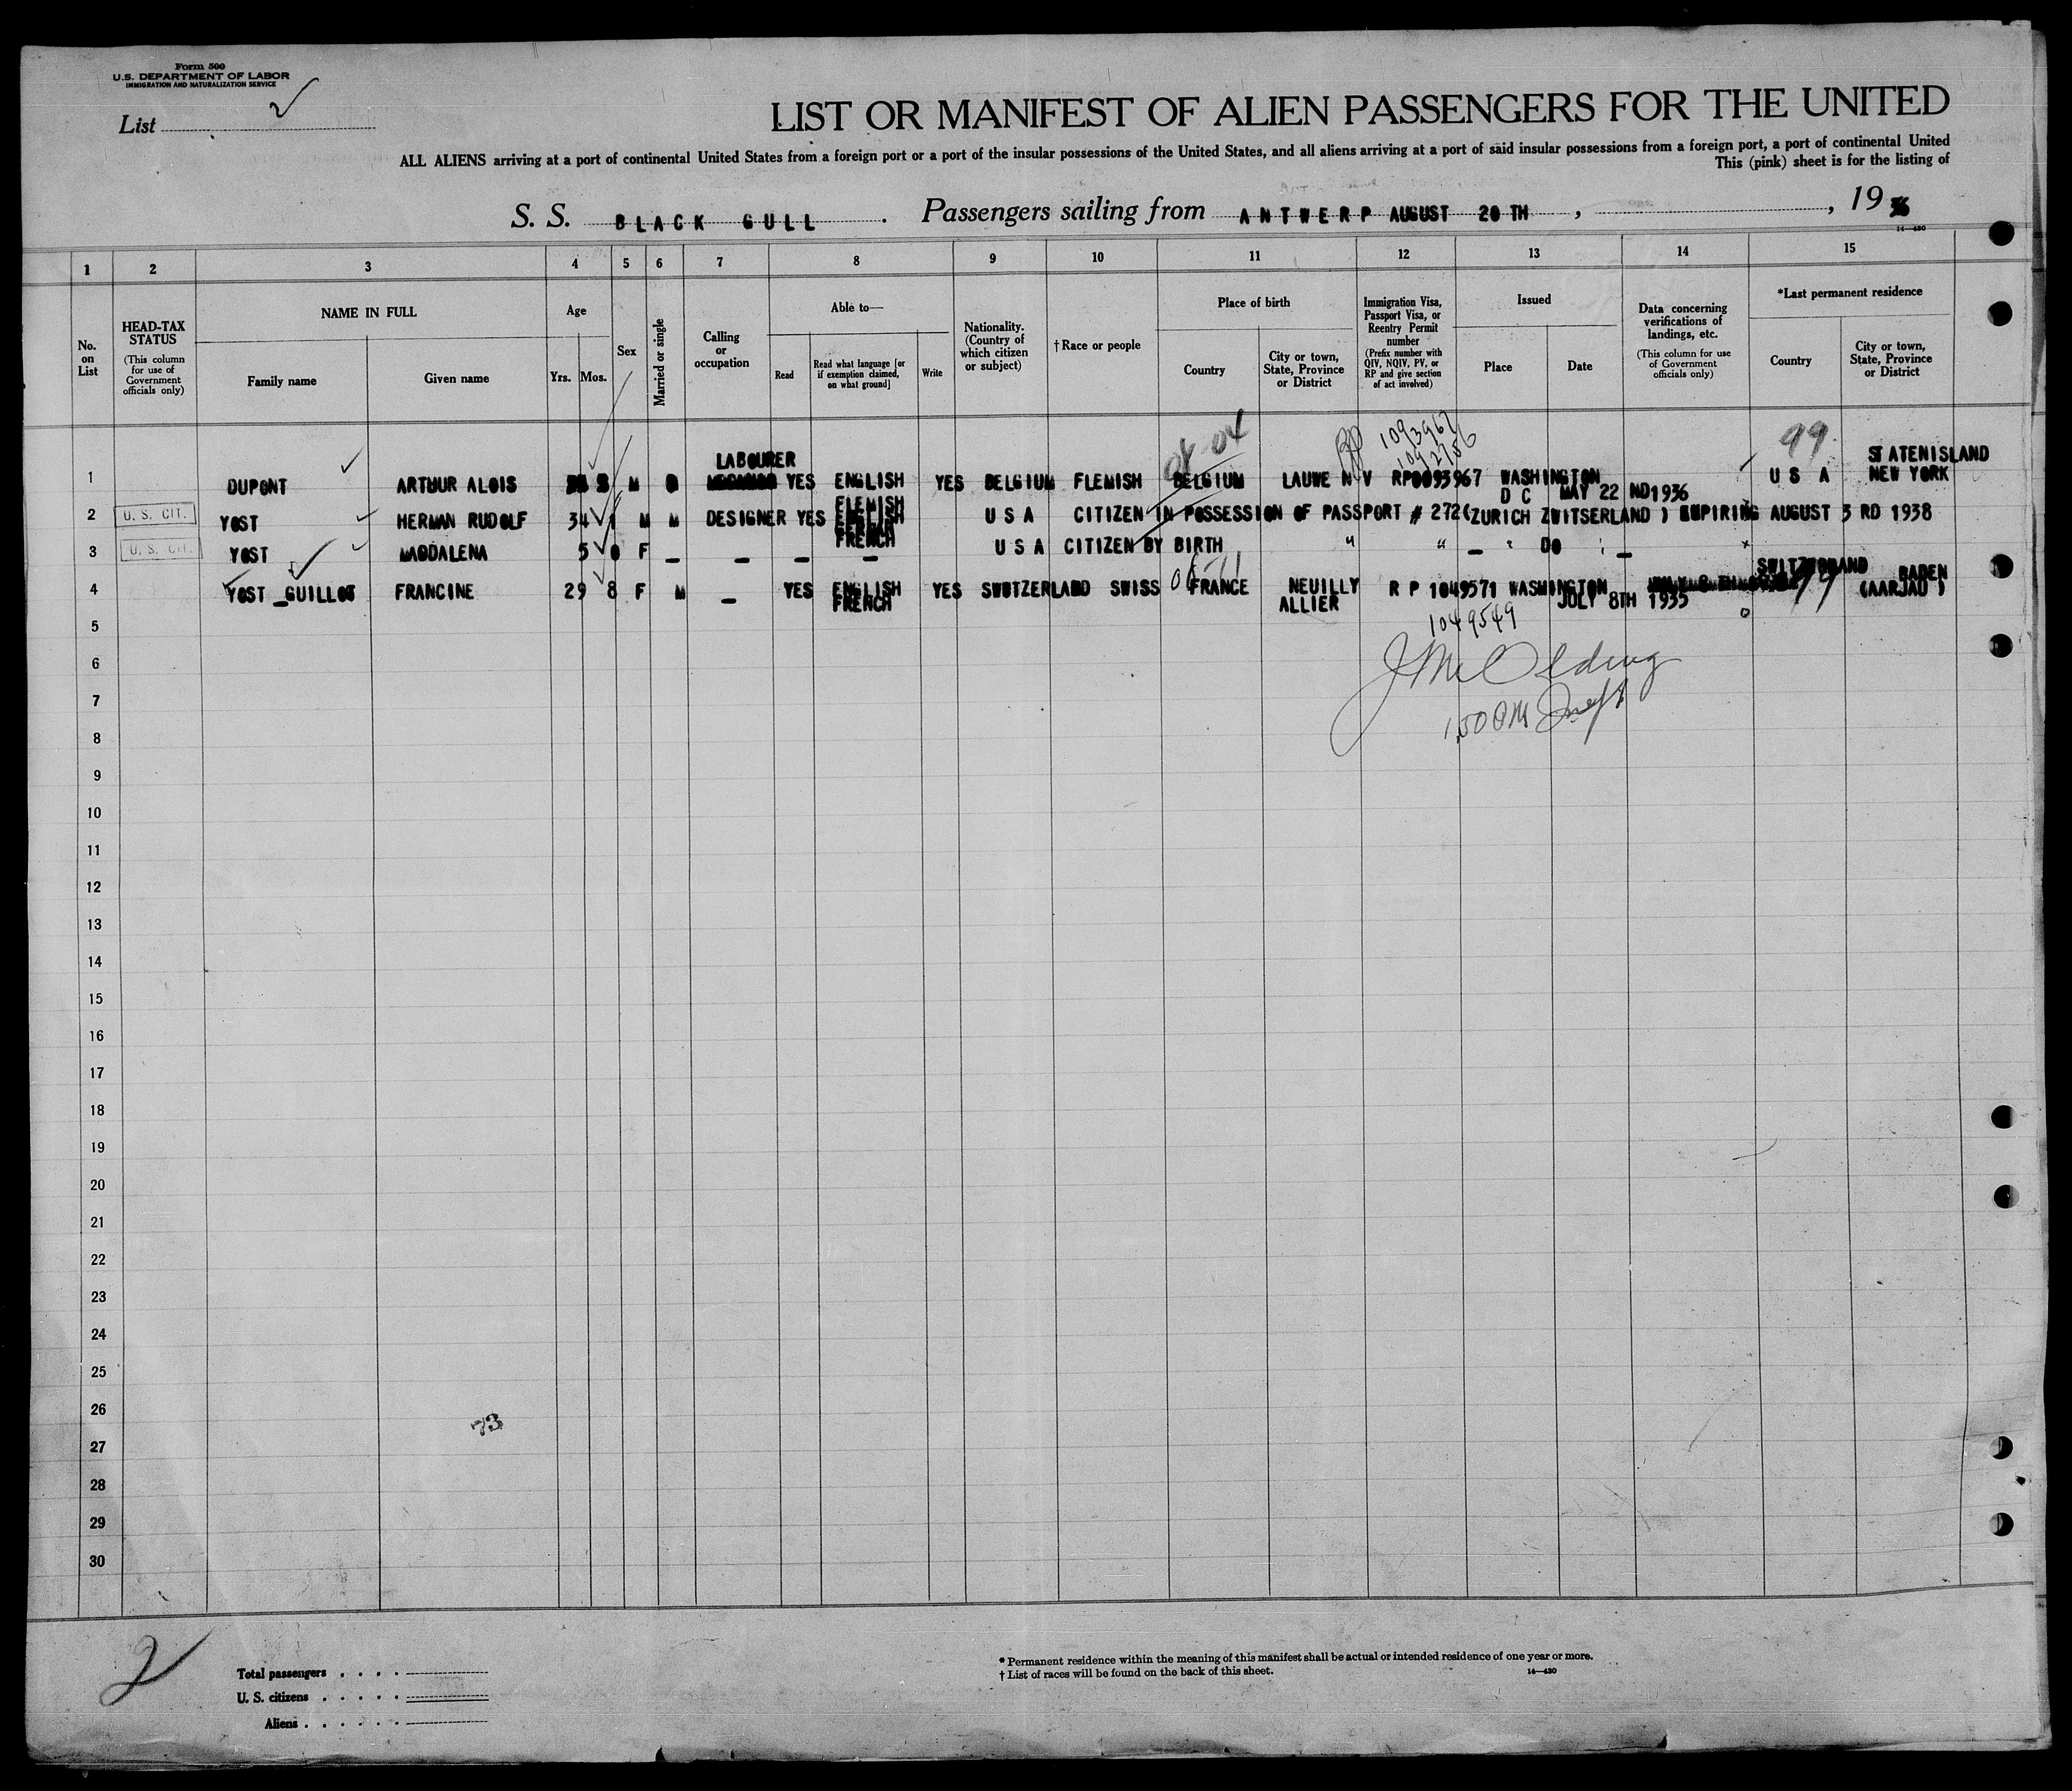 Form 500
U.S. DEPARTMENT OF LABOR
IMMIGRATION AND NATURALIZATION SERVICE
List 2
LIST OR MANIFEST OF ALIEN PASSENGERS FOR THE UNITED
ALL ALIENS arriving at a port of continental United States from a foreign port or a port of the insular possessions of the United States, and all aliens arriving at a port of said insular possessions from a foreign port, a port of continental United
This (pink) sheet is for the listing of
S. S. BLACK GULL. Passengers sailing from ANTWERP AUGUST 20 TH, , 19 36
14—430
1 2 3 4 5 6 7 8 9 10 11 12 13 14 15
No. on List
HEAD-TAX STATUS
(This column for use of Government officials only)
NAME IN FULL
Family name
Given name
Age
Yrs. Mos.
Sex
Married or single
Calling or occupation
Able to—
Read
Read what language [or if exemption claimed, on what ground]
Write
Nationality. (Country of which citizen or subject)
†Race or people
Place of birth
Country
City or town, State, Province or District
Immigration Visa, Passport Visa, or Reentry Permit number
(Prefix number with QIV, NQIV, PV, or RP and give section of act involved)
Issued
Place
Date
Data concerning verifications of landings, etc.
(This column for use of Government officials only)
*Last permanent residence
Country
City or town, State, Province or District
04-04
RP 1093967
1092756
99
LABOURER STATEN ISLAND
1 DUPONT ARTHUR ALOIS M YES ENGLISH YES BELGIUM FLEMISH BELGIUM LAUWE N V RP0093967 WASHINGTON U S A NEW YORK
FLEMISH D C MAY 22 ND1936
2 U. S. CIT. YOST HERMAN RUDOLF 34 1 M M DESIGNER YES ENGLISH U S A CITIZEN IN POSSESSION OF PASSPORT # 272 (ZURICH ZWITSERLAND ) EXPIRING AUGUST 3 RD 1938
FRENCH
3 U. S. CIT. YOST MAGDALENA 5 0 F _ _ _ _ U S A CITIZEN BY BIRTH " " _ " DO _
SWITZERLAND BADEN
4 YOST _GUILLOT FRANCINE 29 8 F M _ YES ENGLISH YES SWUTZERLAND SWISS FRANCE NEUILLY R P 1049571 WASHINGTON 99 (AARJAU )
FRENCH ALLIER JULY 8TH 1935
5 1049549
6
7
8
9
10
11
12
13
14
15
16
17
18
19
20
21
22
23
24
25
26
73
27
28
29
30
2
Total passengers . . . .
U. S. citizens . . . . .
Aliens . . . . . .
* Permanent residence within the meaning of this manifest shall be actual or intended residence of one year or more.
† List of races will be found on the back of this sheet.
14—430